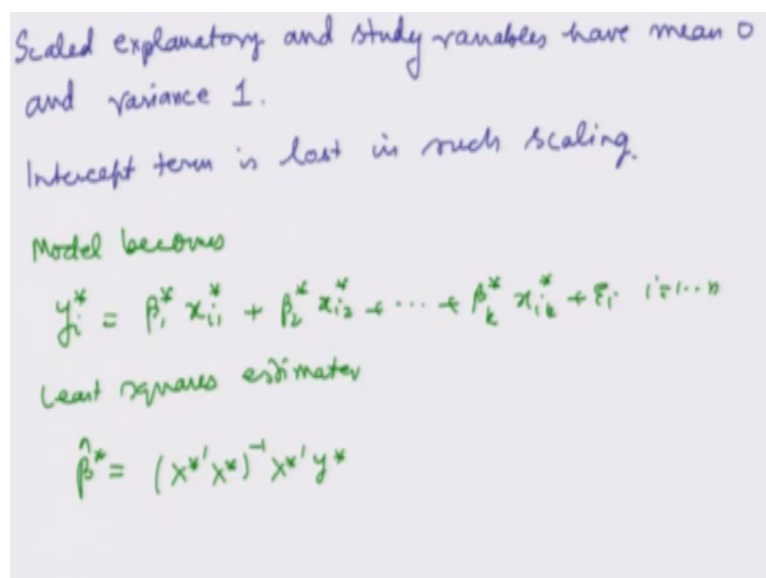 Scaled explanatory and study variables have mean 0
and variance 1.
Intercept term is lost in such scaling.
Model becomes
y_i^* = β_1^* x_{i1}^* + β_2^* x_{i2}^* + ... + β_k^* x_{ik}^* + ε_i  i=1...n
Least squares estimator
β̂^* = (X^*'X^*)^{-1} X^*'y^*